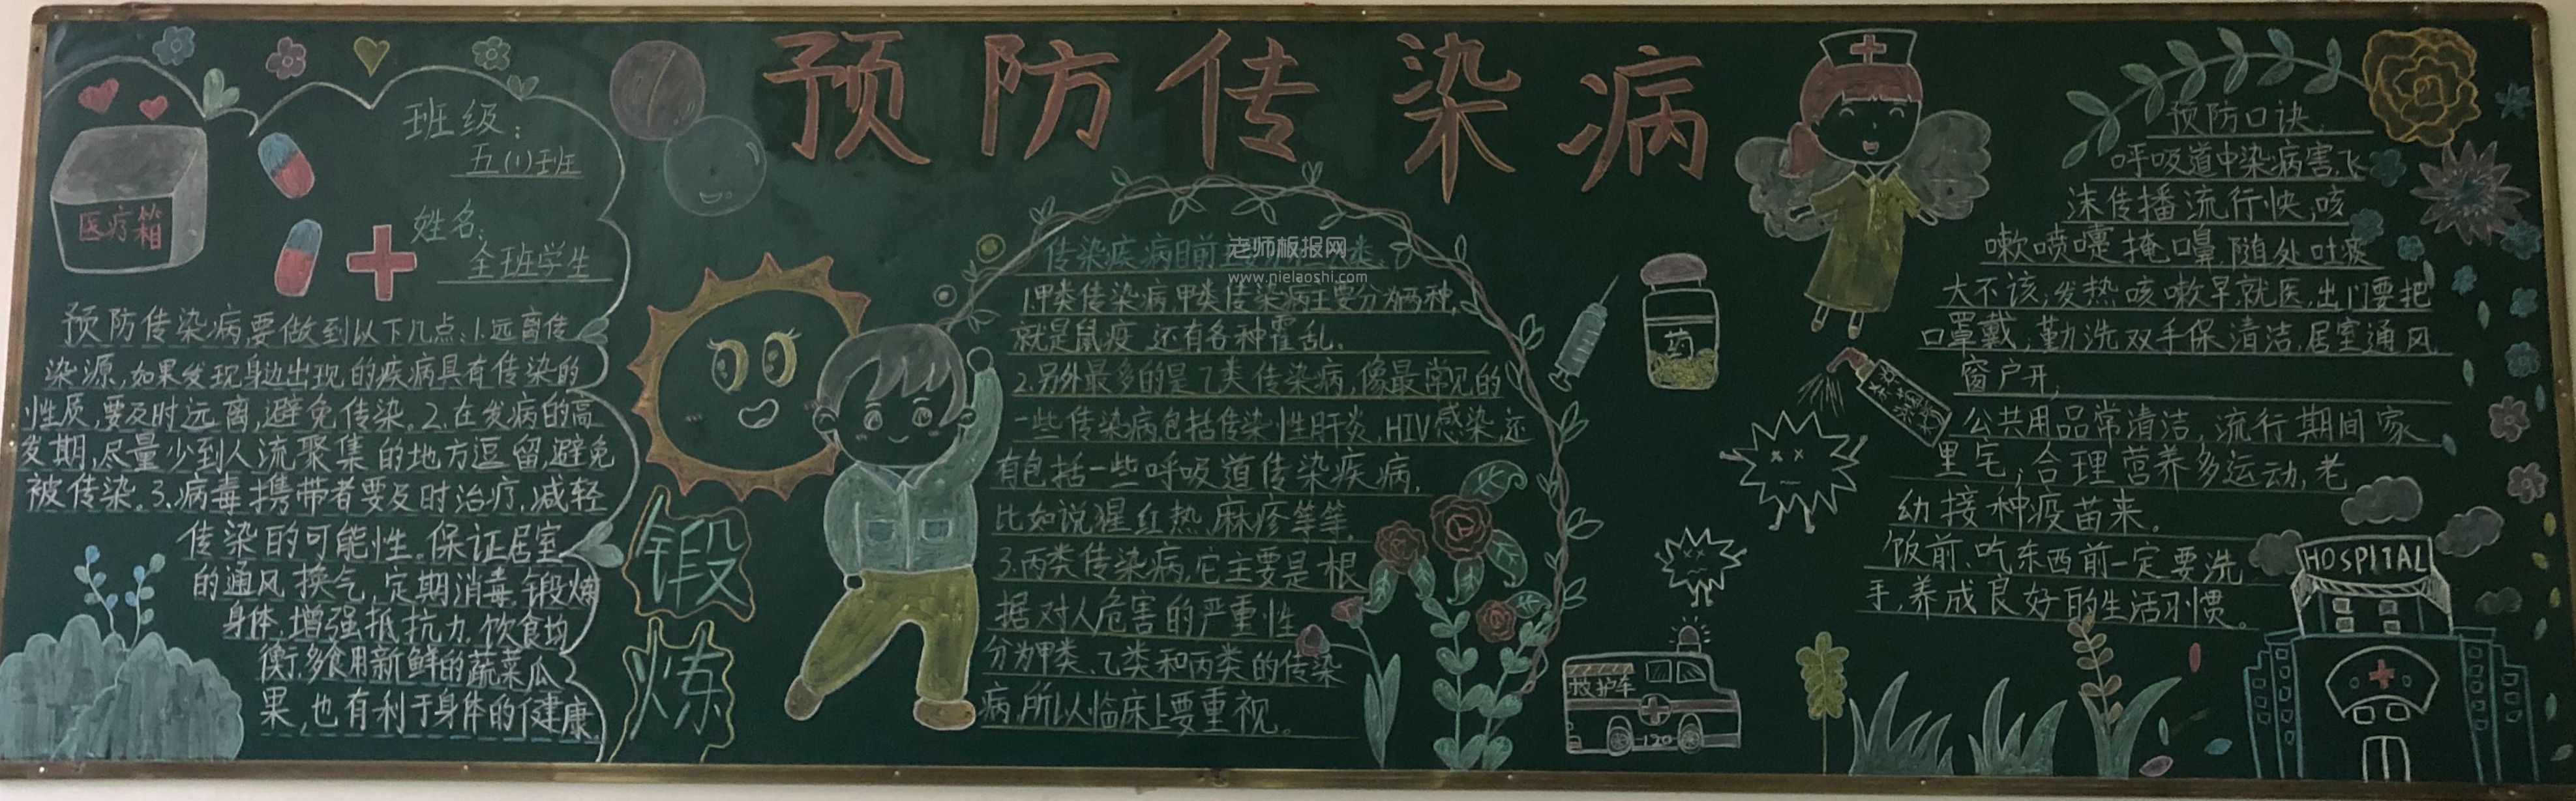 预防传染病
班级：
五(1)班
姓名：
全班学生
医疗箱
预防传染病,要做到以下几点:1.远离传
染源,如果发现身边出现的疾病具有传染的
性质,要及时远离,避免传染。2.在发病的高
发期,尽量少到人流聚集的地方逗留,避免
被传染。3.病毒携带者要及时治疗,减轻
传染的可能性。保证居室
的通风换气,定期消毒,锻炼
身体,增强抵抗力,饮食均
衡,多食用新鲜的蔬菜瓜
果,也有利于身体的健康。
锻
炼
传染疾病目前
类
老师板报网
www.nielaoshi.com
1.甲类传染病,甲类传染病主要分为两种,
就是鼠疫,还有各种霍乱.
2.另外最多的是乙类传染病,像最常见的
一些传染病包括传染性肝炎,HIV感染,还
有包括一些呼吸道传染疾病,
比如说猩红热,麻疹等等。
3.丙类传染病,它主要是根
据对人危害的严重性
分为甲类、乙类和丙类的传染
病,所以临床上要重视。
药
救护车
120
预防口诀:
呼吸道中染病害,飞
沫传播流行快,咳
嗽喷嚏掩口鼻,随处吐痰
大不该,发热咳嗽早就医,出门要把
口罩戴,勤洗双手保清洁,居室通风
窗户开,
公共用品常清洁,流行期间家
里宅,合理营养多运动,老
幼接种疫苗来。
饭前、吃东西前一定要洗
手,养成良好的生活习惯。
HOSPITAL